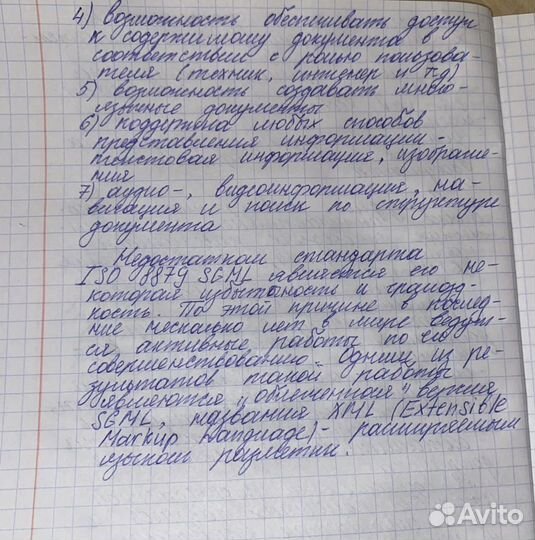 4) возможность обеспечивать доступ
к содержимому документа в
соответствии с ролью пользова-
теля (техник, инженер и т.д)
5) возможность создавать много-
язычные документы
6) поддержка любых способов
представления информации -
текстовая информация, изображе-
ния
7) аудио-, видеоинформация, на-
вигация и поиск по структуре
документа
Недостатком стандарта
ISO 8879 SGML является его не-
которая избыточность и громозд-
кость. По этой причине в послед-
ние несколько лет в мире ведут-
ся активные работы по его
совершенствованию. Одним из ре-
зультатов такой работы
является "облегченная" версия
SGML, названная XML (Extensible
Markup Language)- расширяемым
языком разметки.
Avito